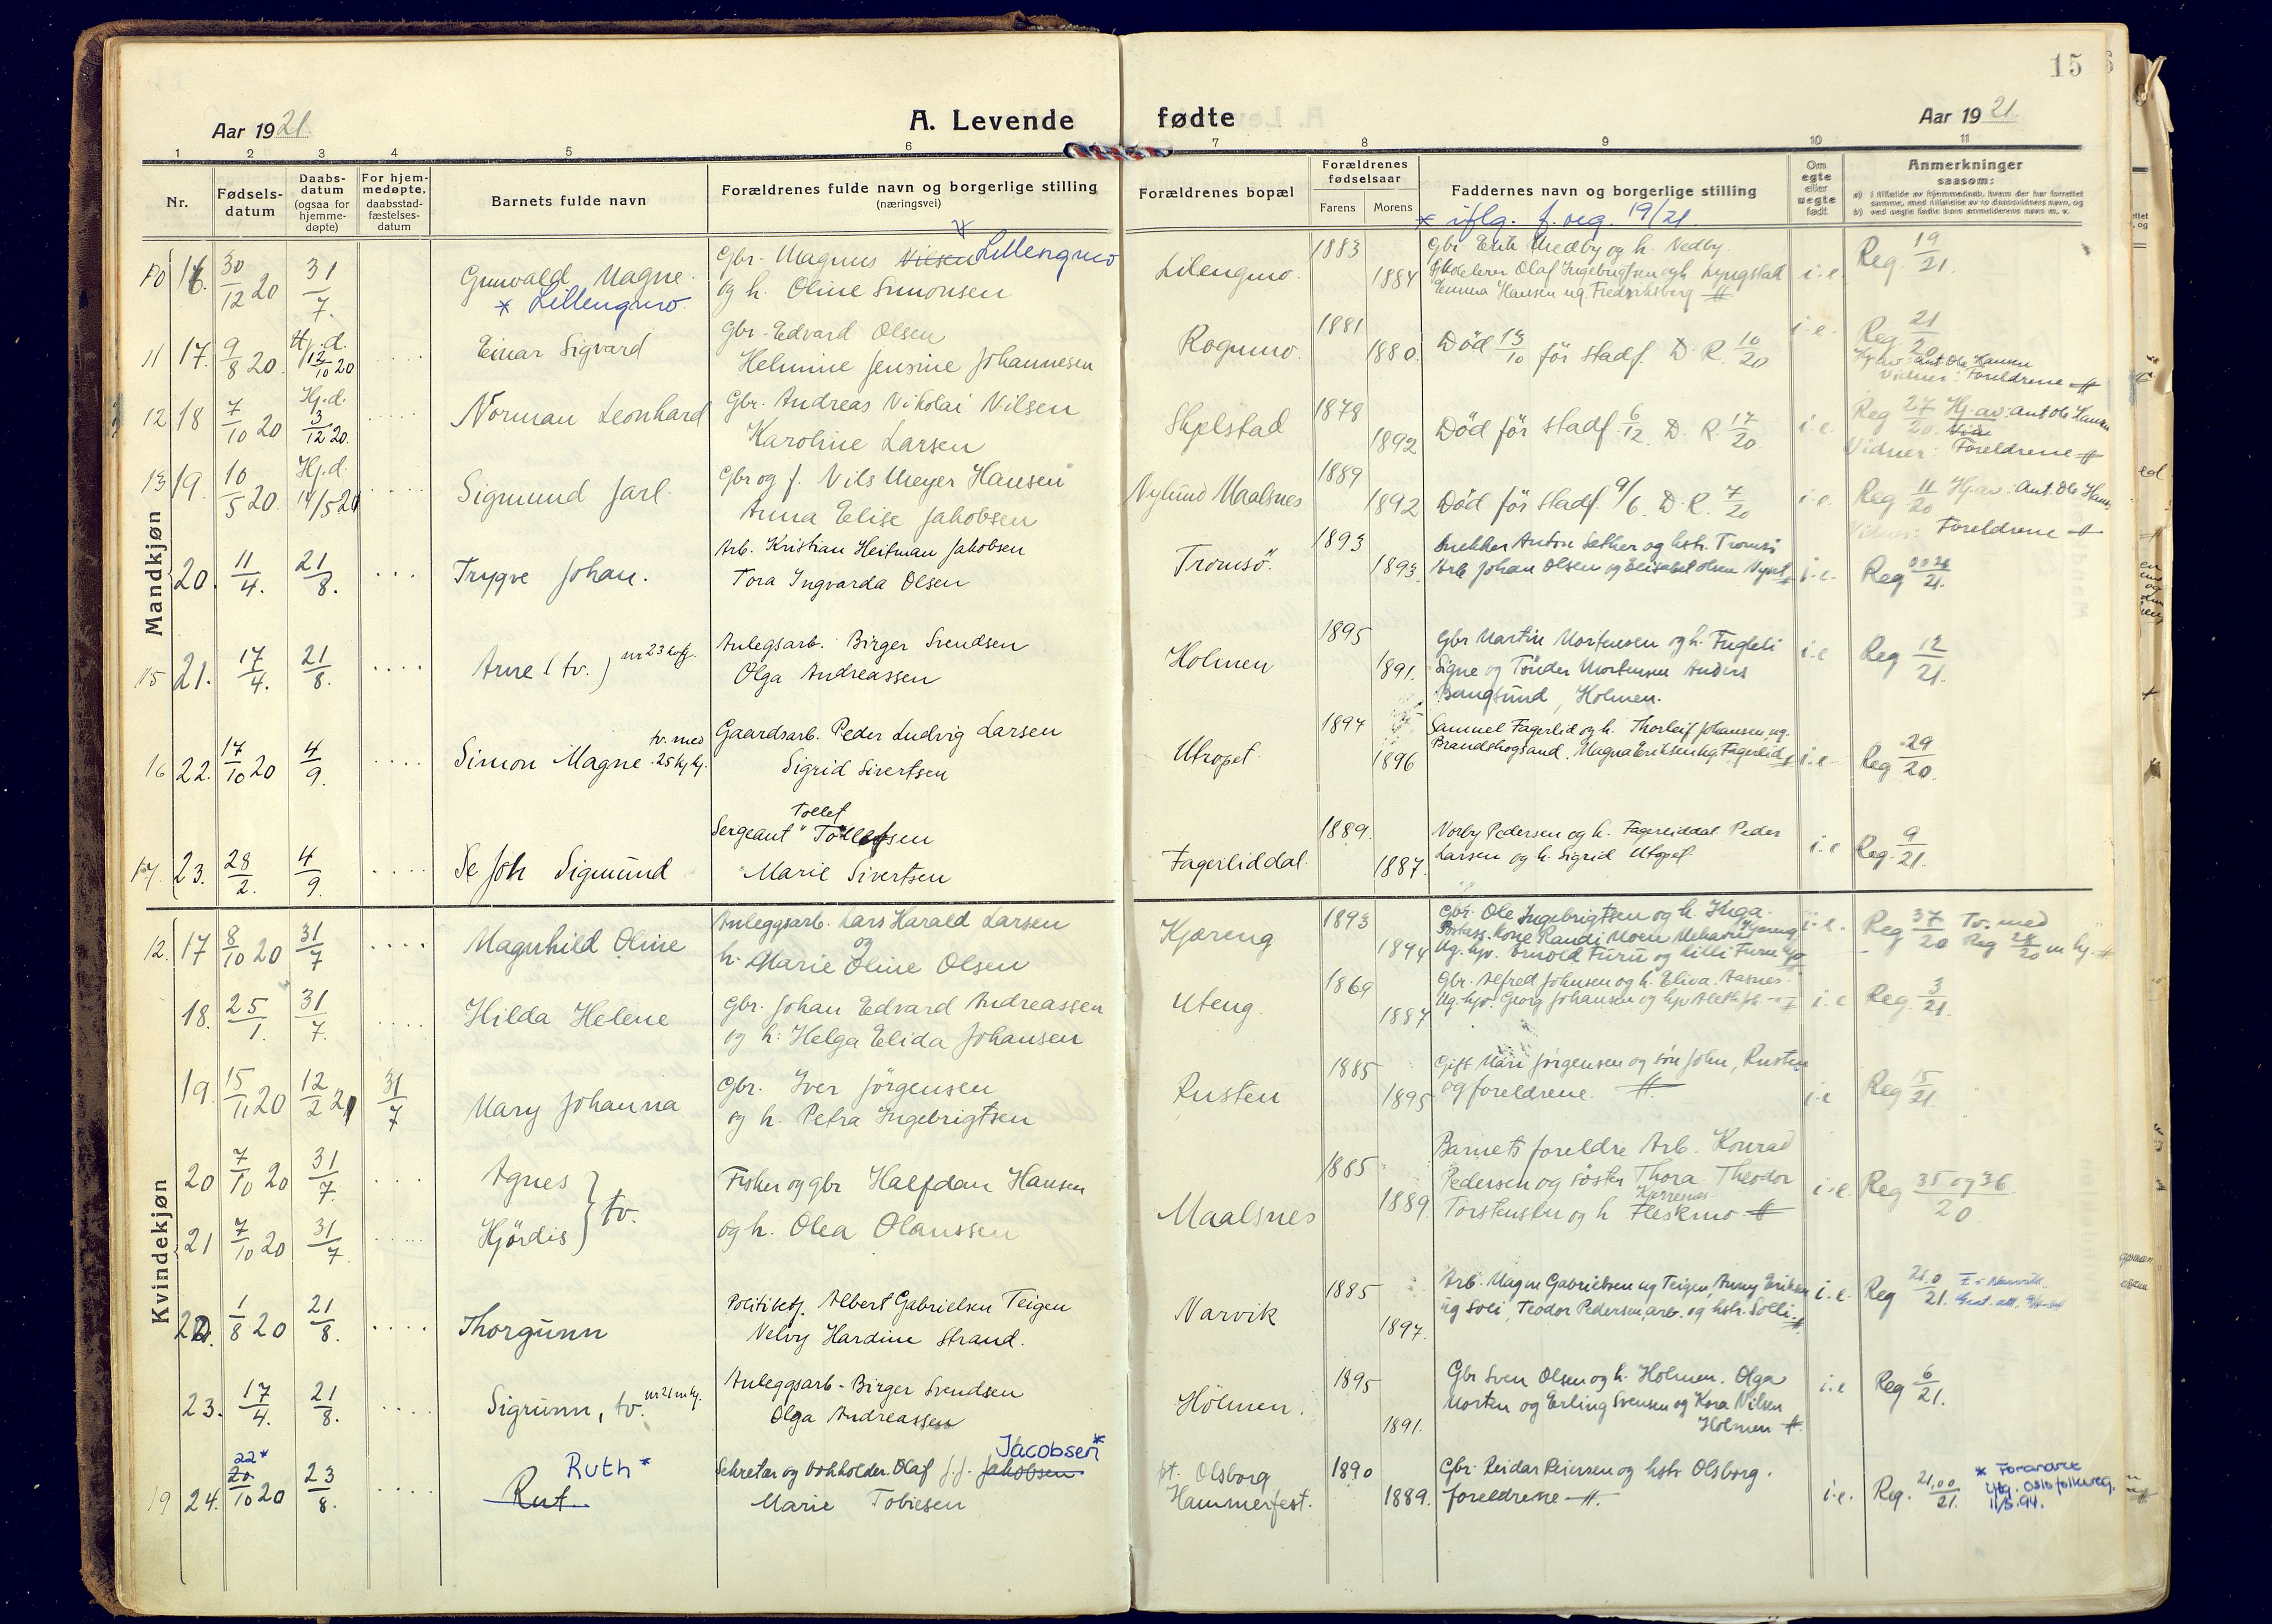 15
Aar 1921.
A. Levende fødte
Aar 1921
1 2 3 4 5 6 7 8 9 10 11
Nr.
Fødsels-
datum
Daabs-
datum
(ogsaa for
hjemme-
døpte)
For hjem-
medøpte,
daabsstad-
fæstelses-
datum
Barnets fulde navn
Forældrenes fulde navn og borgerlige stilling
(næringsvei)
Forældrenes bopæl
Forældrenes
fødselsaar
Farens Morens
Faddernes navn og borgerlige stilling
* iflg. f. reg. 19/21
Om
egte
eller
uegte
født
Anmerkninger
saasom:
Mandkjøn
10 16. 30/12 20 31/7. Gunvald Magne. Gbr. Magnus Nilsen * Lillengmo
* Lillengmo. og h. Oline Simonsen
Lilengmo. 1883 1884 Gbr. Erik Medby og h. Nedby.
Skolelærer Olaf Ingebrigtsen og h. Lyngstad
Hansen ug. Fredriksberg i.e. Reg. 19/21.
11 17. 9/8 20. Hj.d. 12/10 20 Einar Sigvard Gbr. Edvard Olsen
Helmine Jensine Johannesen
Rogmo. 1881 1880. Død 13/10 før stadf. D. R. 10/20 i.e. Reg 21/20
Hj. av: Ant Ole Hansen
Vidner: Foreldrene
12 18 7/10 20 Hj.d. 3/12 20. Norman Leonhard Gbr. Andreas Nikolai Nilsen
Karoline Larsen
Skjelstad 1878 1892 Død før stadf. 6/12. D. R. 17/20. i.e. Reg 27/20. Hj. av: Ant Ole Hansen
Vidner: Foreldrene
13 19. 10/5 20. Hj.d. 14/5 20 Sigmund Jarl Gbr og f. Nils Meyer Hansen
Anna Elise Jakobsen
Nylund Maalsnes 1889 1892 Død før stadf. 9/6. D. R. 7/20 i.e. Reg 11/20 Hj. av: Ant. Ole Hans.
Vidner: Foreldrene
20. 11/4. 21/8. Trygve Johan. Arb. Kristian Heitman Jakobsen
Tora Ingvarda Olsen
Tromsø. 1893 1893. Snekker Anton Sæther og hstr. Tromsø
Arb. Johan Olsen og Elisabet Olsen i.e. Reg /21.
15 21. 17/4. 21/8. Arne (tv.) nr 23 kvfj. Anlegsarb. Birger Svendsen
Olga Andreassen
Holmen 1895 1891. Gbr Martin Mortensen og h. Fugleli
Signe og Tønder Mortensen Anders
Bangsund, Holmen. i.e Reg 12/21.
16 22. 17/10 20 4/9. Simon Magne tv. med 25 kj. Gaardsarb. Peder Ludvig Larsen
Sigrid Sivertsen
Utropet 1894 1896 Samuel Fagerlid og h. Thorleif Johansen ug.
Brandskogsand. Magna Eriksen ug. Fagerlid i.e. Reg 29/20.
17. 23. 28/2. 4/9. Sigmund Tollef
Sergeant Tollefsen
Marie Sivertsen
Fagerliddal. 1889. 1887. Norby Pedersen og h. Fagerliddal Peder
Larsen og h. Sigrid Utropet i.e Reg. 9/21.
Kvindekjøn
12. 17 8/10 20 31/7 Magnhild Oline Anleggsarb. Lars Harald Larsen
og
h. Marie Oline Olsen
Kjæreng 1893 1894 Gbr. Ole Ingebrigtsen og h. Inga. Kjæreng
kone Randi Moen
Ug. hjv. Arnold Furu og Lilli Furu i.e. Reg 37/20 Tv. med
Reg 28/20 m kj.
18. 25/1. 31/7. Hilda Helene Gbr. Johan Edvard Andreassen
og h. Helga Elida Johansen
Uteng. 1869 1887 Gbr. Alfred Johnsen og h. Eliva. Aasnes
Ug. hjv. Georg Johansen og hjv i.e Reg. 3/21.
19. 15/11 20 12/2 21 31/7 Mary Johanna Gbr. Iver Jørgensen
og h. Petra Ingebrigtsen
Rusten 1885 1895 Gift Mari Jørgensen og søn John, Rusten
og foreldrene. i.e Reg 15/21.
20 7/10 20 31/7. Agnes } tv. Fisker og gbr Halfdan Hansen
21 7/10 20 31/7 Hjördis og h. Olea Olaussen
Maalsnes 1885 1889. Barnets foreldre Arb. Konrad
Pedersen og søster Thora. Theodor
Torstensen og h. Fleskmo i.e. Reg 35 og 36/20
22. 1/8 20 21/8. Thorgunn Politibetj. Albert Gabrielsen Teigen
Nelvy Hardine Strand.
Narvik 1885 1897. Arb. Magne Gabrielsen ug Teigen, Anny Eriksen
ug Soli, Teodor Pedersen, arb. og hstr. Solli. i.e. Reg /21.
23. 17/4. 21/8. Sigrunn, tv. nr 21 mkj. Anleggsarb. Birger Svendsen
Olga Andreassen
Holmen. 1895 1891. Gbr Sven Olsen og h. Holmen. Olga
Morten og Erling Svensen og Kora Nilsen
Holmen i.e Reg 6/21.
19 24. 22* 20/10 20 23/8. Rut Ruth* Sekretær og bokholder. Olaf J.J. Jakobsen Jacobsen*
Marie Tobiesen
pt. Olsborg
Hammerfest. 1890 1889. Gbr. Reidar Reiersen og hstr. Olsborg.
foreldrene i.e. Reg. 21,00/21. * Forandret
iflg. Oslo folkereg.
11/5.94.